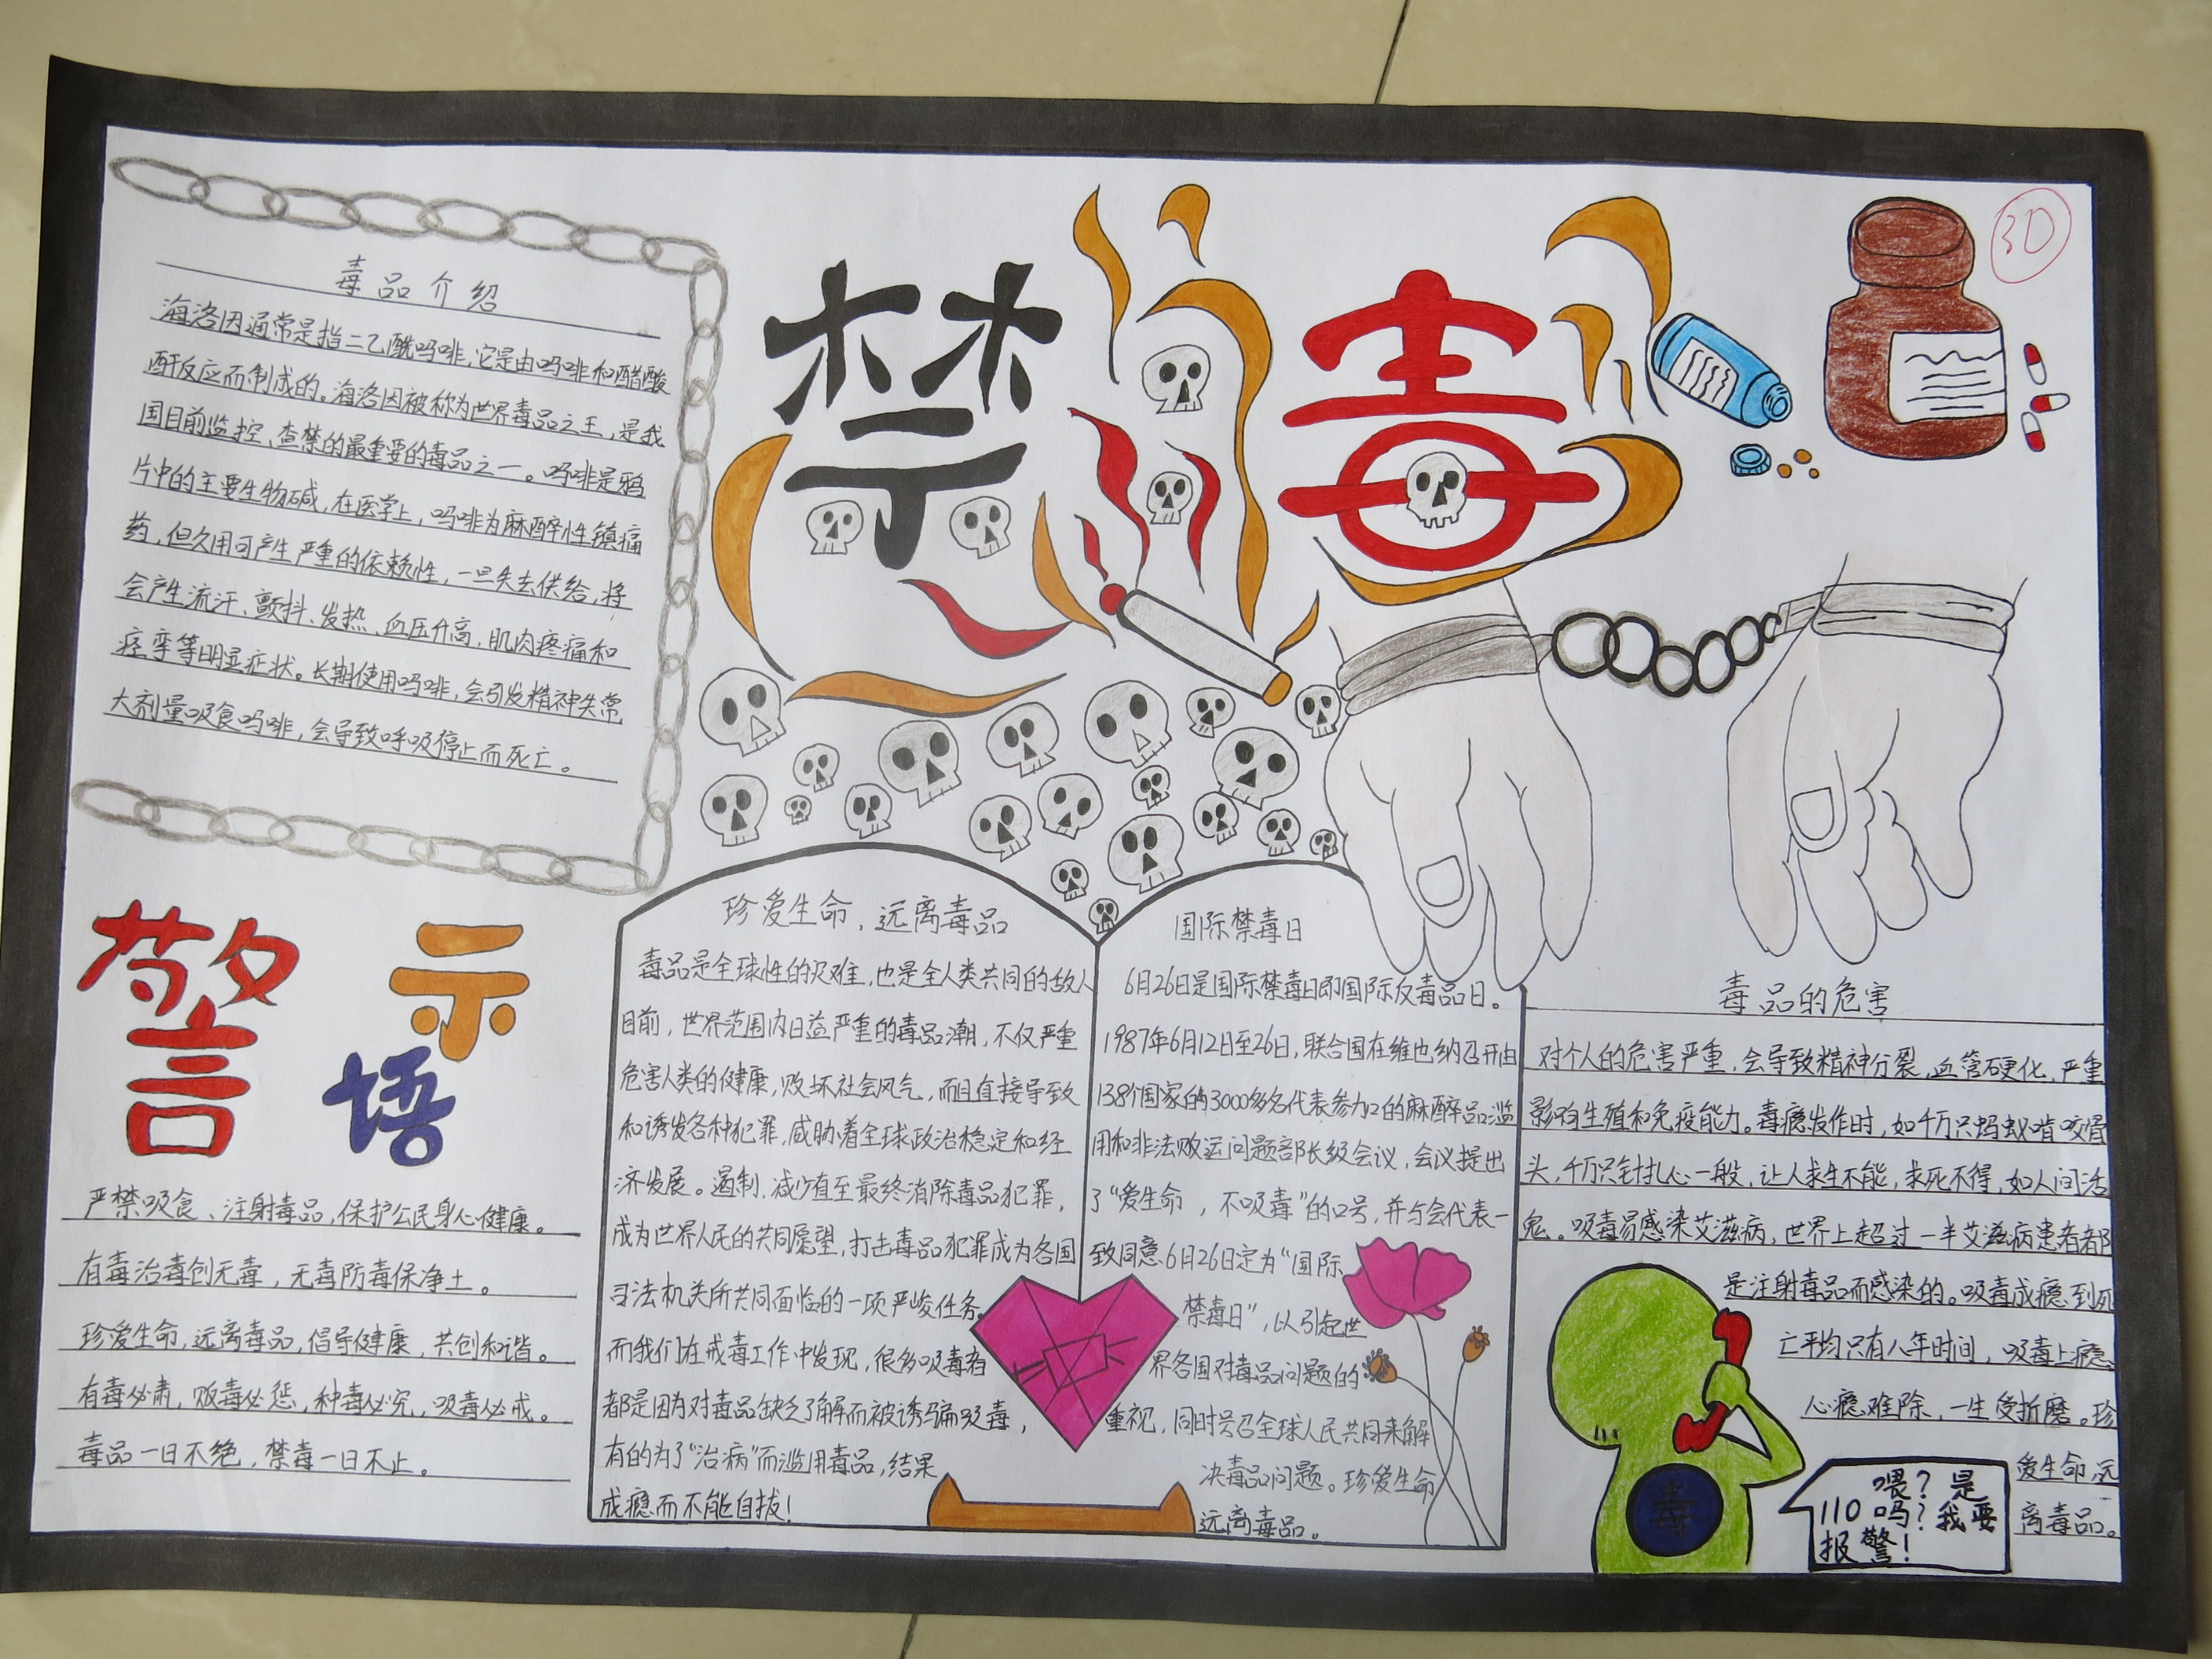 毒品介绍
海洛因通常是指二乙酰吗啡,它是由吗啡和醋酸
酐反应而制成的。海洛因被称为世界毒品之王,是我
国目前监控、查禁的最重要的毒品之一。吗啡是鸦
片中的主要生物碱,在医学上,吗啡为麻醉性镇痛
药,但久用可产生严重的依赖性,一旦失去供给,将
会产生流汗、颤抖、发热、血压升高,肌肉疼痛和
痉挛等明显症状。长期使用吗啡,会引发精神失常
大剂量吸食吗啡,会导致呼吸停止而死亡。
禁毒
3D
警示语
严禁吸食、注射毒品,保护公民身心健康。
有毒治毒创无毒,无毒防毒保净土。
珍爱生命,远离毒品,倡导健康,共创和谐。
有毒必肃,贩毒必惩,种毒必究,吸毒必戒。
毒品一日不绝,禁毒一日不止。
珍爱生命,远离毒品
毒品是全球性的灾难,也是全人类共同的敌人
目前,世界范围内日益严重的毒品潮,不仅严重
危害人类的健康,败坏社会风气,而且直接导致
和诱发各种犯罪,威胁着全球政治稳定和经
济发展。遏制,减少直至最终消除毒品犯罪,
成为世界人民的共同愿望,打击毒品犯罪成为各国
司法机关所共同面临的一项严峻任务。
而我们在戒毒工作中发现,很多吸毒者
都是因为对毒品缺乏了解而被诱骗吸毒,
有的为了“治病”而滥用毒品,结果
成瘾而不能自拔!
国际禁毒日
6月26日是国际禁毒日即国际反毒品日。
1987年6月12日至26日,联合国在维也纳召开由
138个国家的3000多名代表参加的麻醉品滥
用和非法贩运问题部长级会议,会议提出
了“爱生命,不吸毒”的口号,并与会代表一
致同意6月26日定为“国际
禁毒日”,以引起世
界各国对毒品问题的
重视,同时号召全球人民共同来解
决毒品问题。珍爱生命
远离毒品。
毒品的危害
对个人的危害严重,会导致精神分裂,血管硬化,严重
影响生殖和免疫能力。毒瘾发作时,如千万只蚂蚁啃咬骨
头,千万只针扎心一般,让人求生不能,求死不得,如人间活
鬼。吸毒易感染艾滋病,世界上超过一半艾滋病患者都
是注射毒品而感染的。吸毒成瘾到死
亡平均只有八年时间,吸毒上瘾
心瘾难除,一生受折磨。珍
爱生命,远
离毒品。
毒
喂?是
110吗?我要
报警!